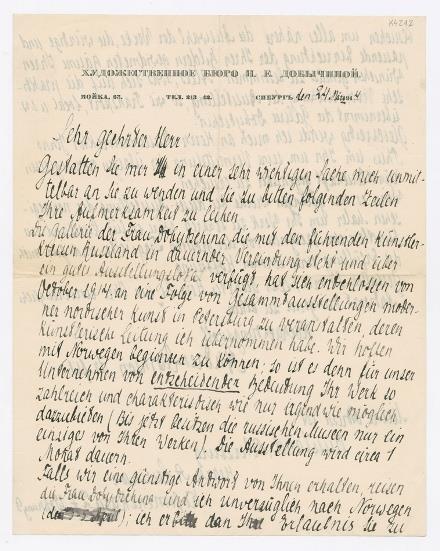 K4292
ХУДОЖЕСТВЕННОЕ БЮРО Н. Е. ДОБЫЧИНОЙ.
МОЙКА, 63. ТЕЛ. 213-42. СПБУРГЪ, den 24 März 4
Sehr geehrter Herr
Gestatten Sie mir in einer sehr wichtigen Sache mich unmit-
telbar an Sie zu wenden und Sie zu bitten folgenden Zeilen
Ihre Aufmerksamkeit zu leihen
Die Gallerie der Frau Dobytschina, die mit den führenden Künstler-
kreisen Russland in dauernder Verbindung steht und über
ein gutes Ausstellungslokal verfügt hat sich entschlossen von
October 1914 an eine Folge von Gesammtausstellungen moder-
ner nordischer Kunst in Petersburg zu veranstalten, deren
künstlerische Leitung ich übernommen habe. Wir hoffen
mit Norwegen beginnen zu können; so ist es denn für unser
Unternehmen von entscheidender Bedeutung Ihr Werk so
zahlreich und charakteristisch wie nur irgendwie möglich
darzubieten (Bis jetzt besitzen die russischen Museen nur ein
einziges von Ihren Werken). Die Ausstellung wird circa 1
Monat dauern.
Falls wir eine günstige Antwort von Ihnen erhalten, reisen
die Frau Dobytschina und ich unverzüglich nach Norwegen
April); ich erbitte dann Ihre Erlaubnis Sie zu